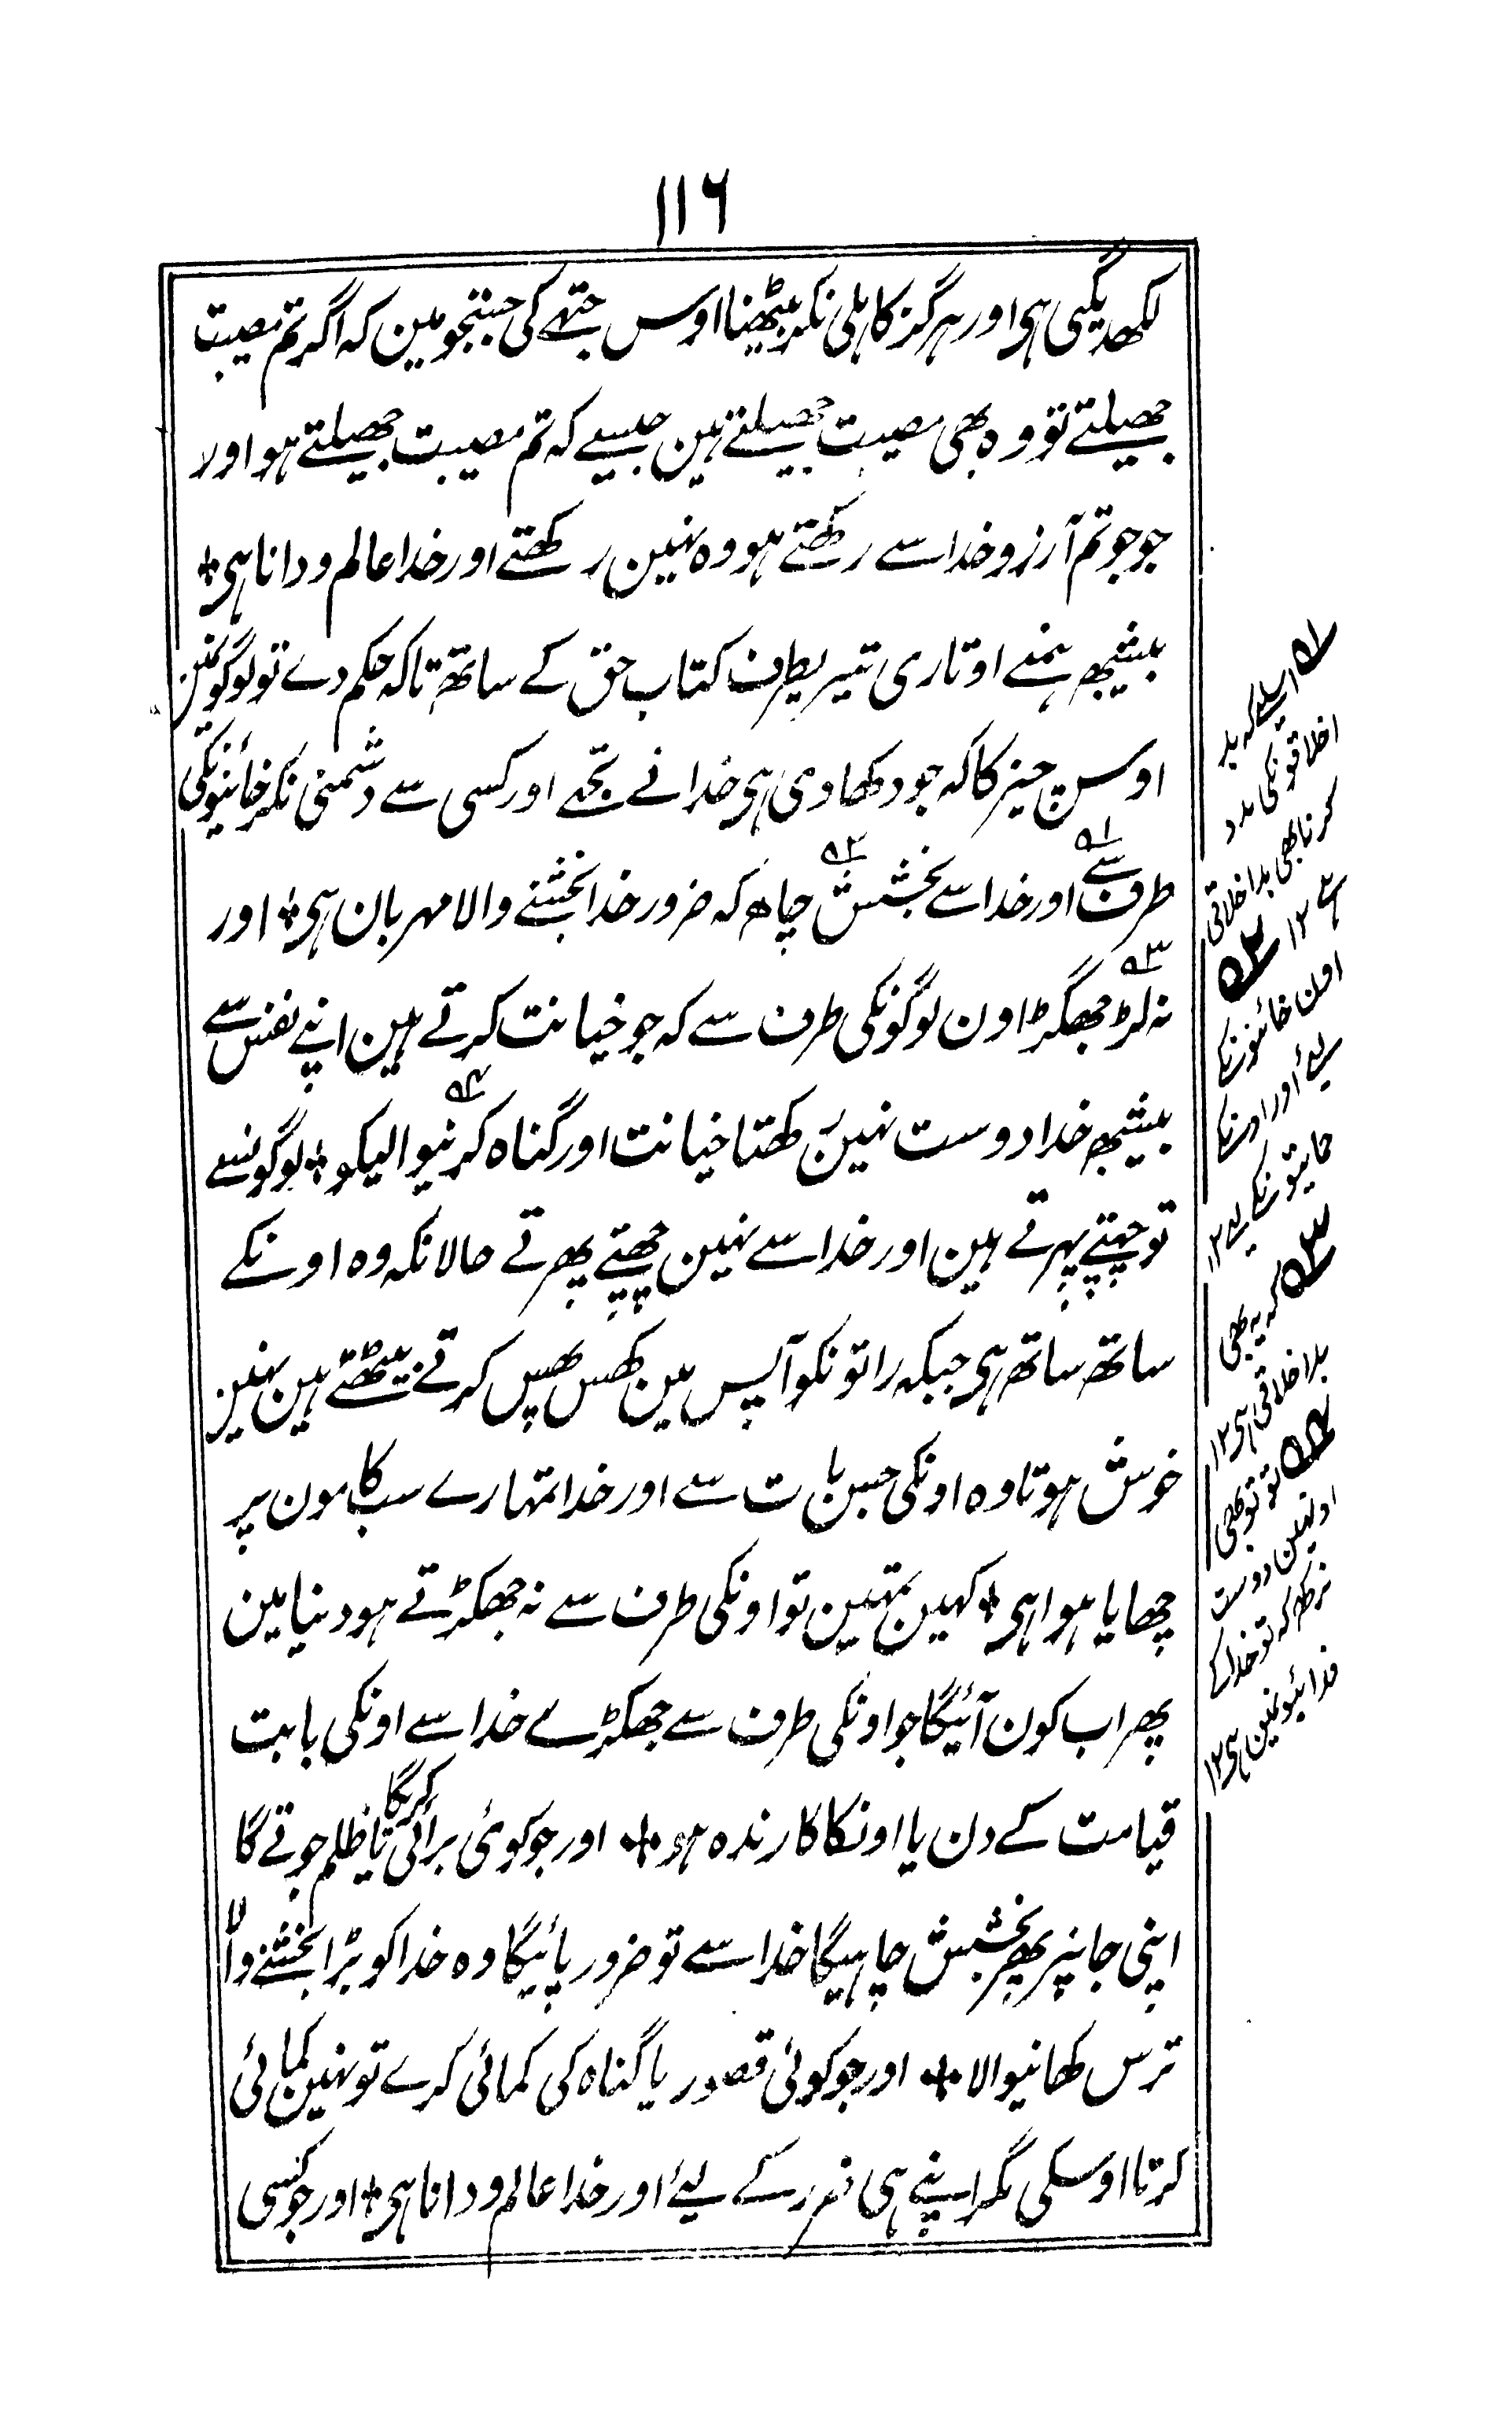 ۱۱۶
لکھدیگئی ہی اور ہرگز کاہلی نکر بیٹھنا اوس جتھے کی جستجو مین کہ اگر تم مصیبت
جھیلتے تو وہ بھی مصیبت جھیلتے ہین جیسے کہ تم مصیبت جھیلتے ہو اور
جو جو تم آرزو خدا سے رکھتے ہو وہ نہین رکھتے اور خدا عالم و دانا ہی ۞
بیشبھہ ہمنے اوتاری تیریطرف کتاب حق کے ساتھ تاکہ حکم دے تو لوگونمین
اوس چیز کا کہ جو دکھا دی ہی خدا نے تجھے اور کسی سے دشمنی نکر خائنونکی
طرف سے ۵۱ اور خدا سے بخشش چاہ ۵۲ کہ ضرور خدا بخشنے والا مہربان ہی ۞ اور
نہ لڑ جھگڑ ۵۳ اون لوگونکی طرف سے کہ جو خیانت کرتے ہین اپنے نفس سے
بیشبھہ خدا دوست نہین رکھتا خیانت اور گناہ کرنیوالیکو ۵۴ ۞ لوگونسے
تو چھپتے پھرتے ہین اور خدا سے نہین چھپتے پھرتے حالانکہ وہ اونکے
ساتھ ساتھ ہی جبکہ راتونکو آپس مین کھس پھس کرتے بیٹھتے ہین نہین
خوش ہوتا وہ اونکی جس بات سے اور خدا تمہارے سب کامون پر
چھایا ہوا ہی ۞ کہین تمہین تو اونکی طرف سے نہ جھکڑتے ہو دنیا مین
پھر اب کون آئیگا جو اونکی طرف سے جھکڑے خدا سے اونکی بابت
قیامت کے دن یا اونکا کارندہ ہو ۞ اور جو کوئی برائی کریگا یا ظلم جوتے گا
اپنی جانپر پھر بخشش چاہیگا خدا سے تو ضرور پائیگا وہ خدا کو بڑا بخشنے والا
ترس کھانیوالا ۞ اور جو کوئی قصور یا گناہ کی کمائی کرے تو نہین کمائی
کرتا اوسکی مگر اپنے ہی ضرر کے لیئے اور خدا عالم و دانا ہی ۞ اور جو کسی
۵۱ اسلیے کہ بد
اخلاقونکی مدد
کرنا بھی بداخلاقی
ہے ۱۲ ۵۲
اون خائنونکے
لیئے اور اونکے
حمایتیونکے لیے ۱۲
۵۳ کہ یہ بھی
بداخلاقی ہی ۱۲
۵۴ تو تو بھی
اونہین دوست
نرکھ کہ تو خدا کے
فدائیونمین ہی ۱۲